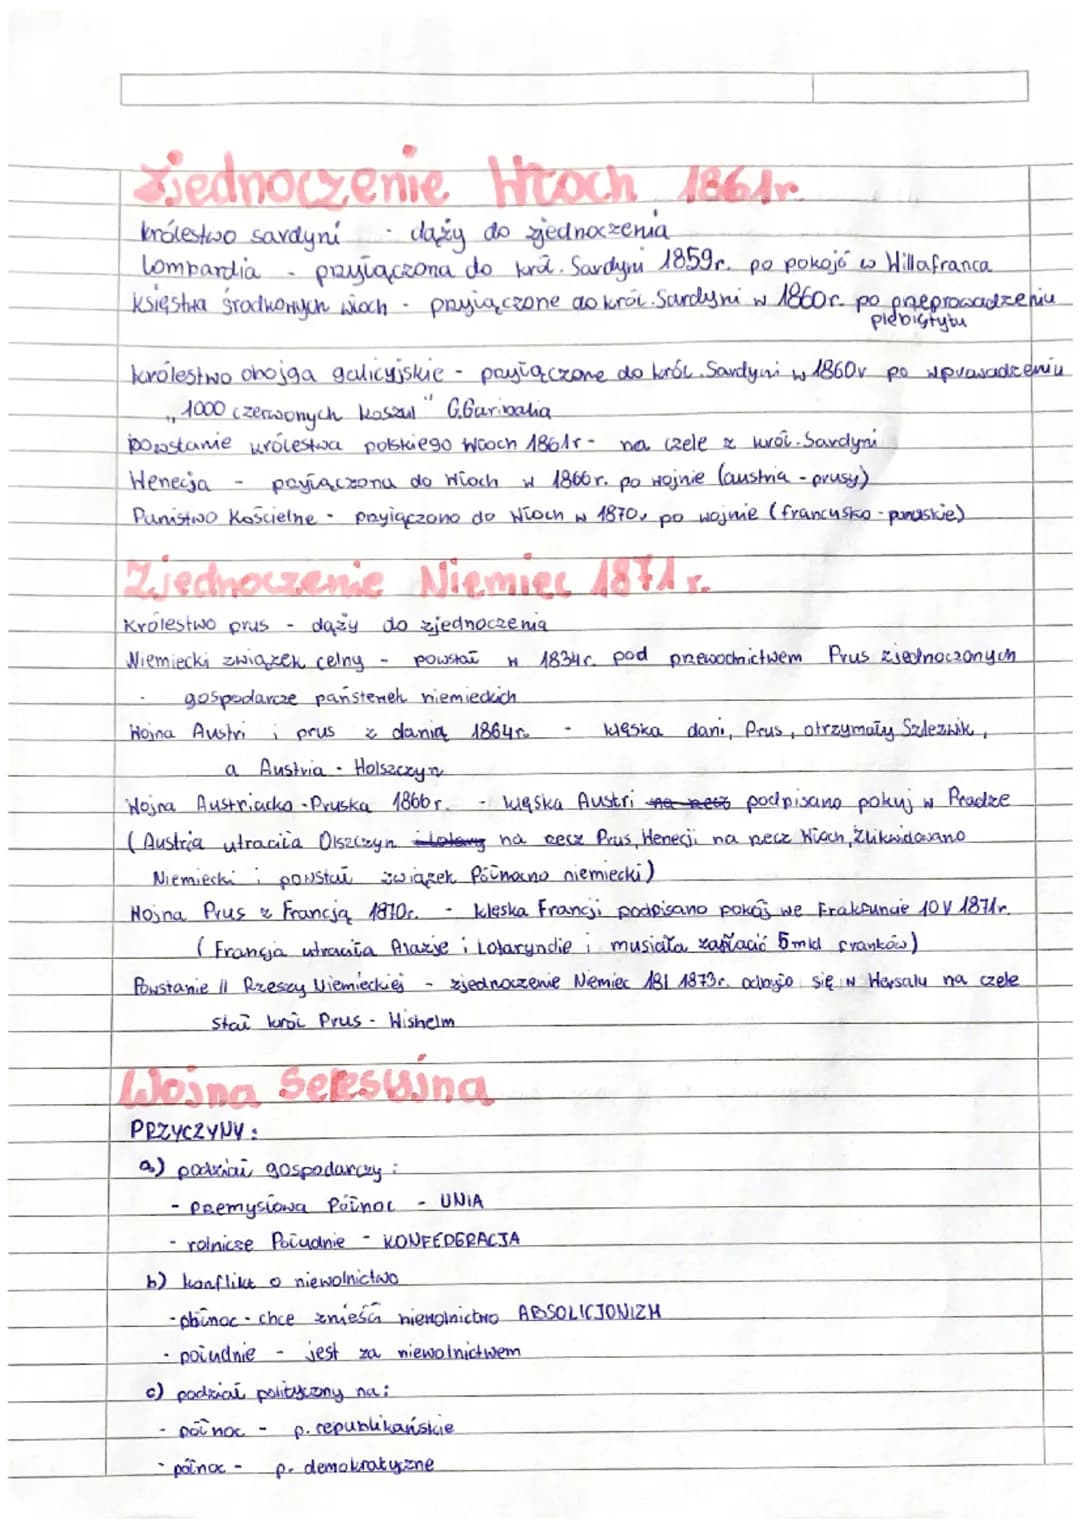 Zjednoczenie Włoch 1861r.
królestwo sardyni - dąży do zjednoczenia
Lombardia - przyłączona do król. Sardyni 1859r. po pokojó w Willafranca
księstwa środkowych włoch - przyłączone do król. Sardyni w 1860r. po przeprowadzeniu
plebistytu
królestwo obojga galicyjskie - przyłączone do król. Sardyni w 1860r po wprowadzeniu
„1000 czerwonych koszul" G.Garibalia
powstanie królestwa polskiego Włoch 1861r - na czele z król. Sardyni
Wenecja - przyłączona do Włoch w 1866r. po wojnie (austria - prusy)
Państwo Kościelne - przyłączono do Włoch w 1870r po wojnie (francusko - pruskie)
Zjednoczenie Niemiec 1871 r.
Królestwo prus - dąży do zjednoczenia
Niemiecki związek celny - powstał w 1834r. pod przewodnictwem Prus zjednoczonych
gospodarcze państewek niemieckich
Wojna Austri i prus z danią 1864r. - klęska dani, Prus, otrzymały Szlezwik,
a Austria - Holszczyn
Wojna Austriacko - Pruska 1866r. - klęska Austri podpisano pokuj w Pradze
(Austria utraciła Olszczyn na rzecz Prus, Wenecji na rzecz Włoch, zlikwidowano
Niemiecki i powstał związek Północno niemiecki)
Wojna Prus z Francją 1870r. - klęska Francji podpisano pokój we Frakfuncie 10 V 1871r.
(Francja utraciła Alazje i Lotaryndie i musiała zapłacić 5 mld franków)
Powstanie II Rzeszy Niemieckiej - zjednoczenie Niemiec 18 I 1873r. odbyło się w Wersalu na czele
stał król Prus - Wishelm
Wojna Secesyjna
PRZYCZYNY:
a) podział gospodarczy:
- przemysłowa Północ - UNIA
- rolnicze Południe - KONFEDERACJA
b) konflikt o niewolnictwo
- północ - chce znieść niewolnictwo ABSOLICJONIZM
- południe - jest za niewolnictwem
c) podział polityczny na:
- północ - p. republikańskie
- północ - p. demokratyczne